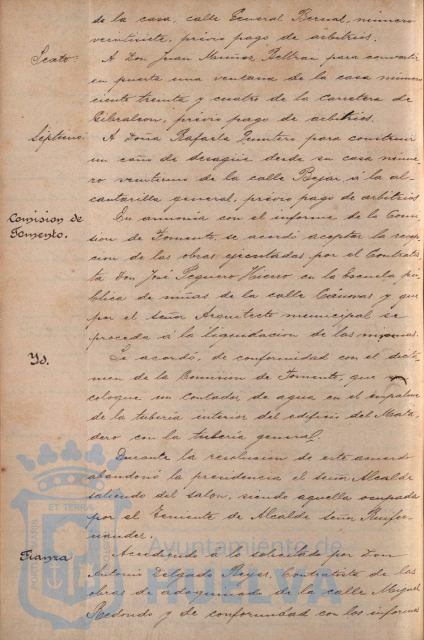 de la casa, calle General Bernal, número
veintisiete, previo pago de arbitrios.
Sexto. A Don Juan Muñoz Beltrán para convertir
en puerta una ventana de la casa número
ciento treinta y cuatro de la Carretera de
Gibraleon, previo pago de arbitrios.
Séptimo. A Doña Rafaela Quintero para construir
un caño de desagüe desde su casa núme-
ro veintiuno de la calle Bejar, á la al-
cantarilla general, previo pago de arbitrios
Comisión de
Fomento.
En armonía con el informe de la Comi-
sion de Fomento, se acordó aceptar la recep-
cion de las obras ejecutadas por el Contratis-
ta Don José Peguero Hierro en la Escuela pú-
blica de niñas de la calle Cánovas y que
por el señor Arquitecto municipal se
proceda á la liquidacion de las mismas.
Yd. Se acordó, de conformidad con el dicta-
men de la Comision de Fomento, que se
coloque un contador de agua en el empalme
de la tubería interior del edificio del Mata-
dero con la tubería general.
Durante la resolucion de este acuerdo
abandonó la presidencia el señor Alcalde
saliendo del salon, siendo aquella ocupada
por el Teniente de Alcalde señor Ruifer-
nandez.
Fianza Accediendo a lo solicitado por Don
Antonio Delgado Reyes, Contratista de las
obras de adoquinado de la calle Miguel
Redondo y de conformidad con los informes
ET TERRA
Ayuntamiento de
HUELVA